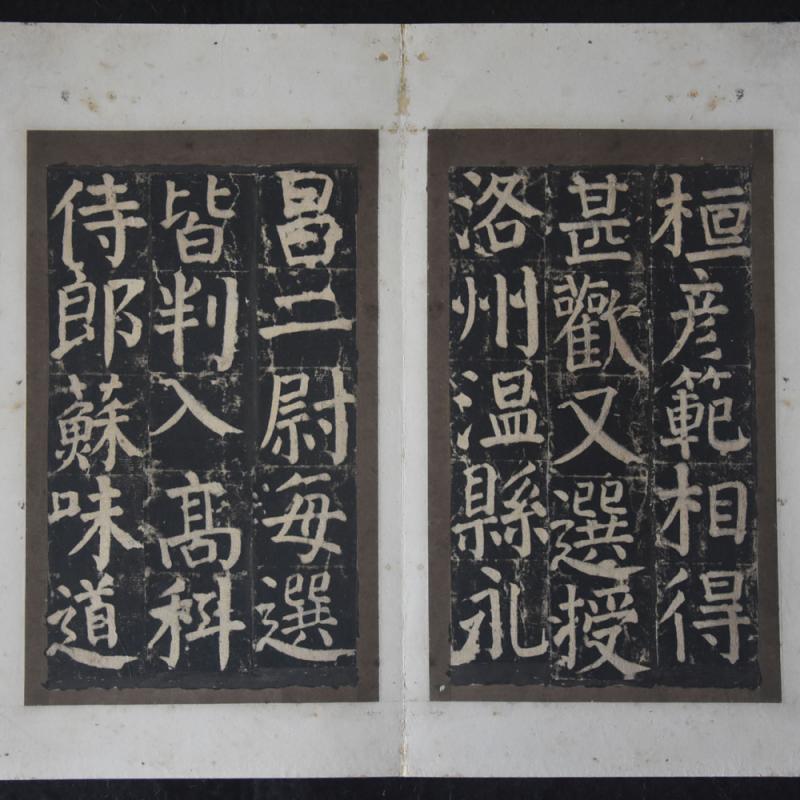 桓彦範相得
甚歡又選授
洛州温縣永
昌二尉每選
皆判入髙科
侍郎蘇味道